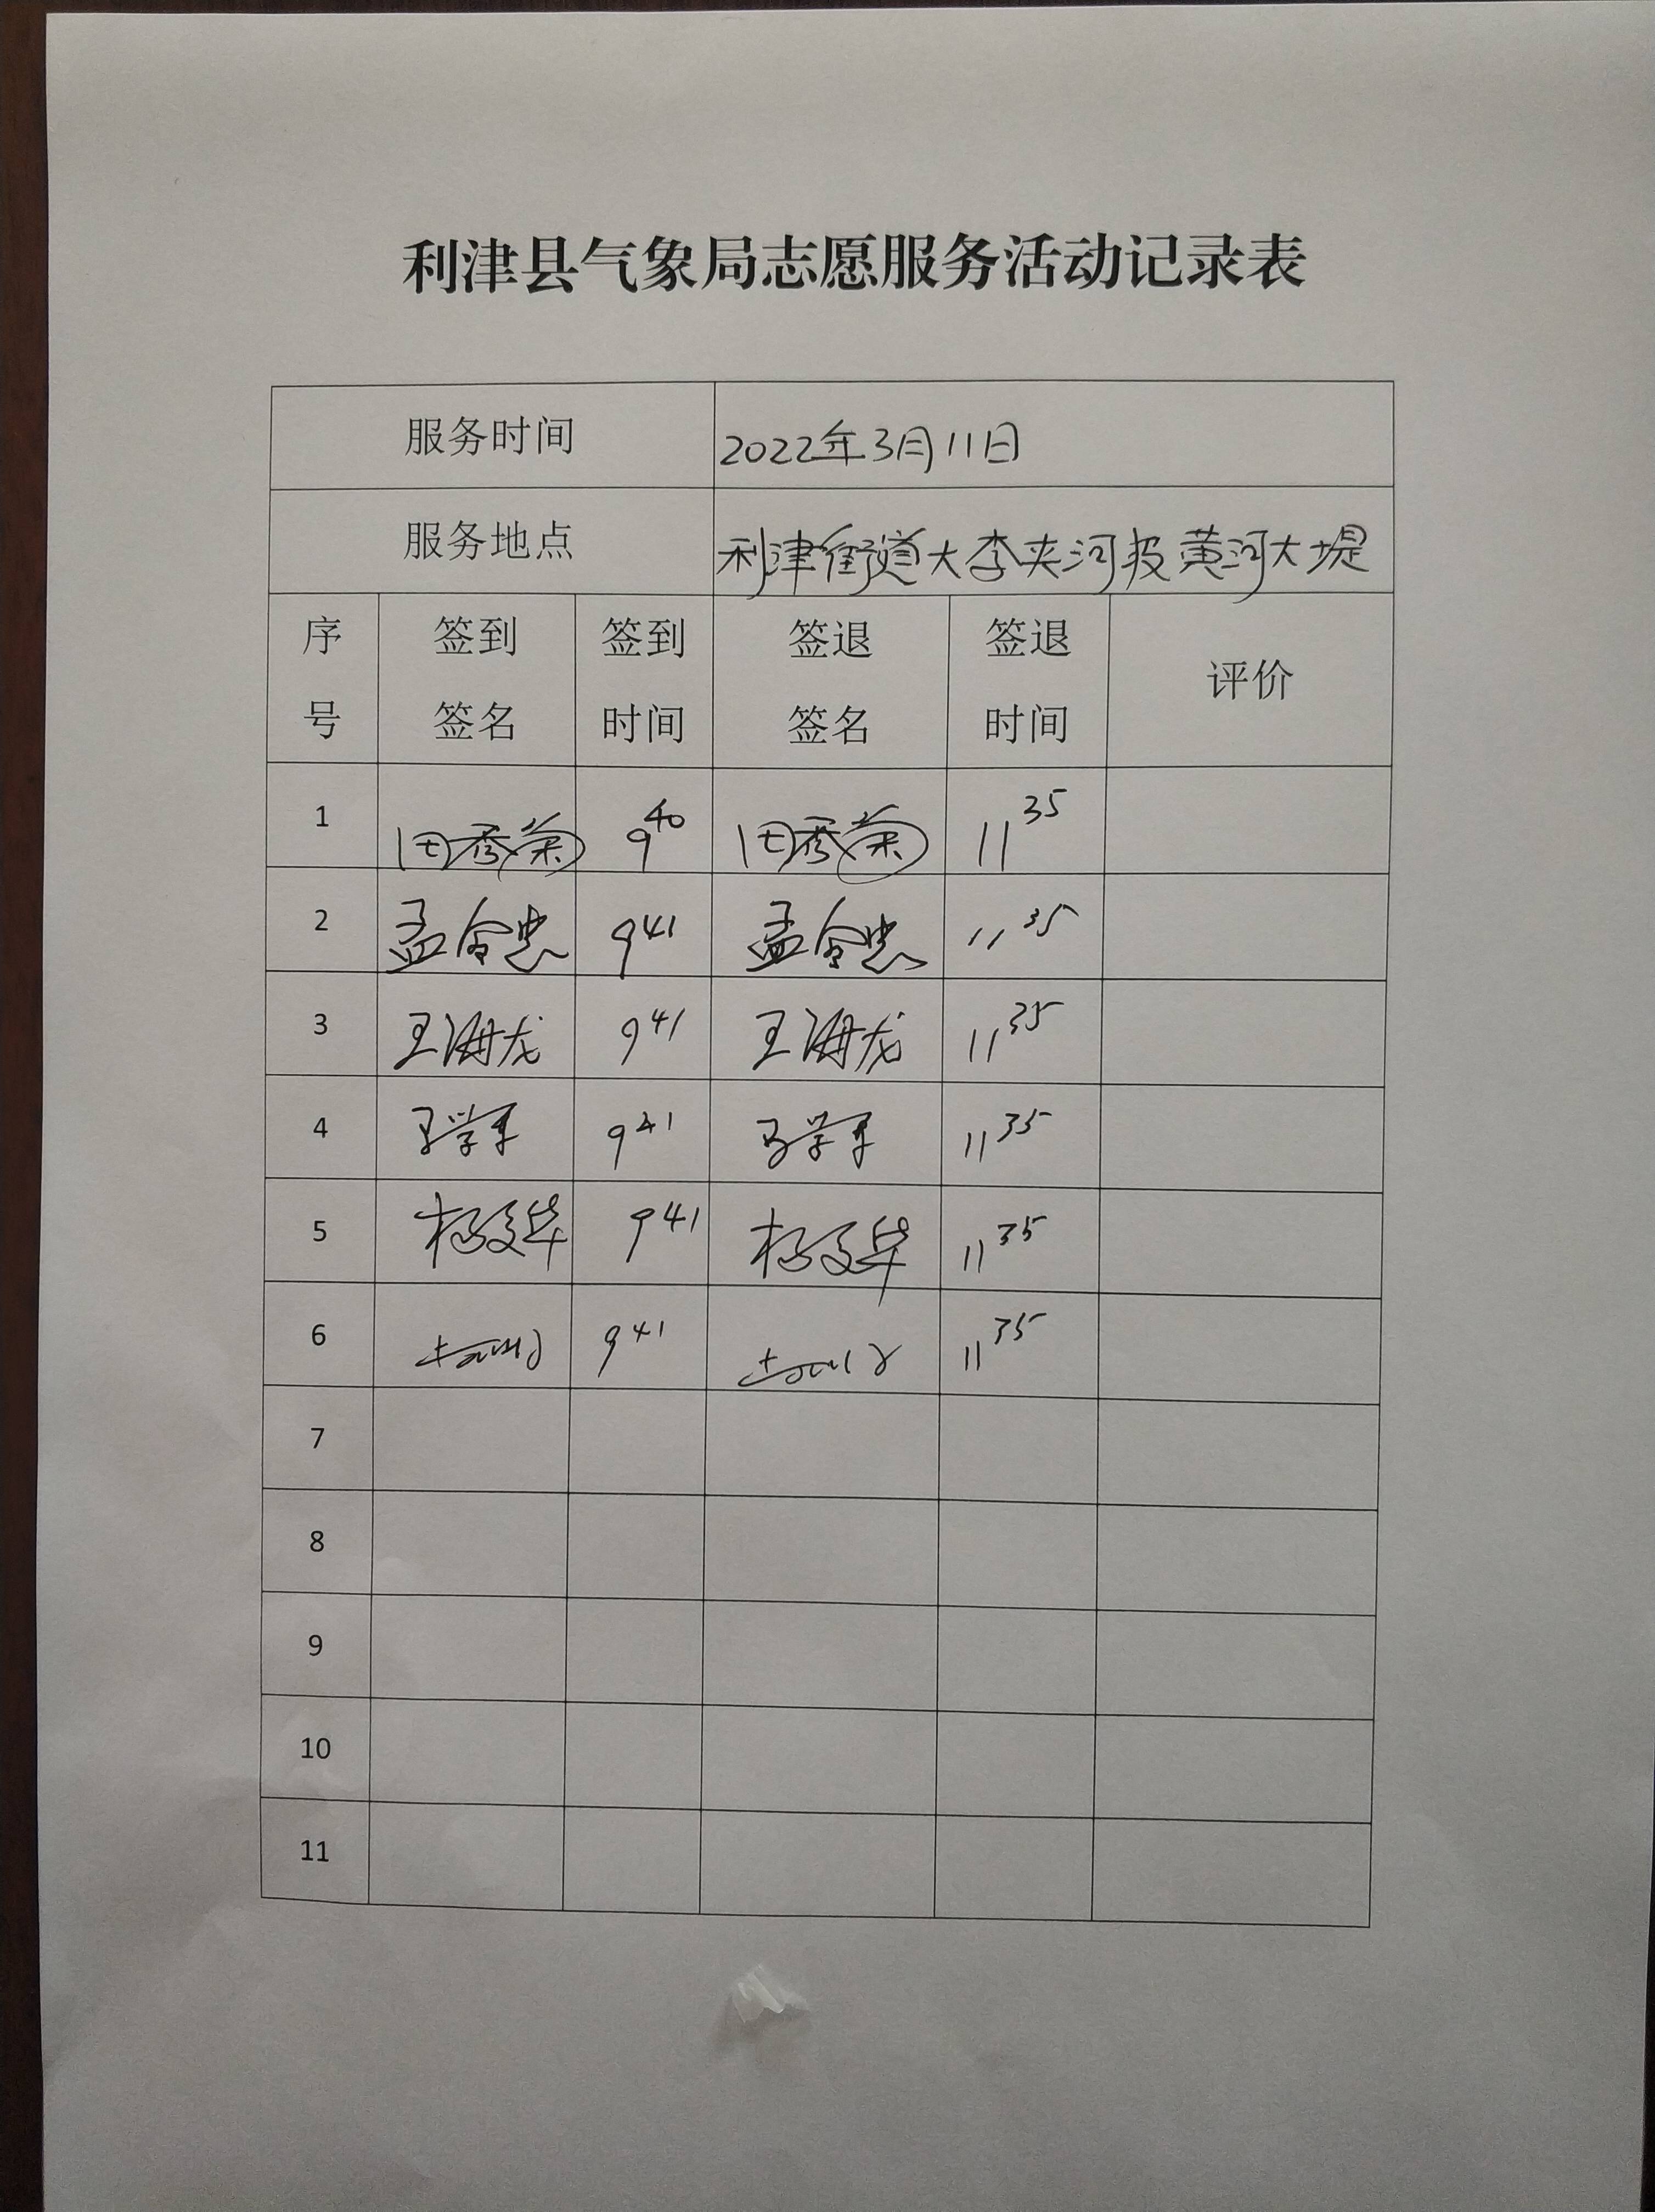 利津县气象局志愿服务活动记录表
服务时间 2022年3月11日
服务地点 利津街道大李夹河段黄河大堤
序号 签到签名 签到时间 签退签名 签退时间 评价
1 田秀菊 9 40 田秀菊 11 35
2 孟令忠 9 41 孟令忠 11 35
3 王海龙 9 41 王海龙 11 35
4 9 41 11 35
5 9 41 11 35
6 9 41 11 35
7
8
9
10
11